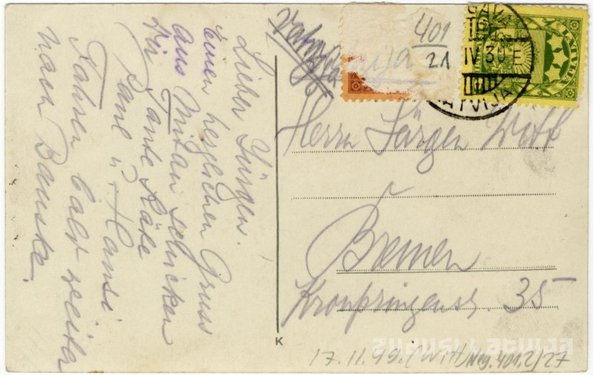 Lieber Jürgen.
Einen herzlichen Gruss
aus Mitau schicken
Dir Tante Käte
Jane u. Hansi
Fahren bald weiter
nach Bauske.
401
21
IV 30 E
LATVIJA
Herrn Jürgen Witt
Bremen
Kronprinzenstr. 35
K
zudusi latvija
17.11.99. (Witt) Neg. 401.2/27